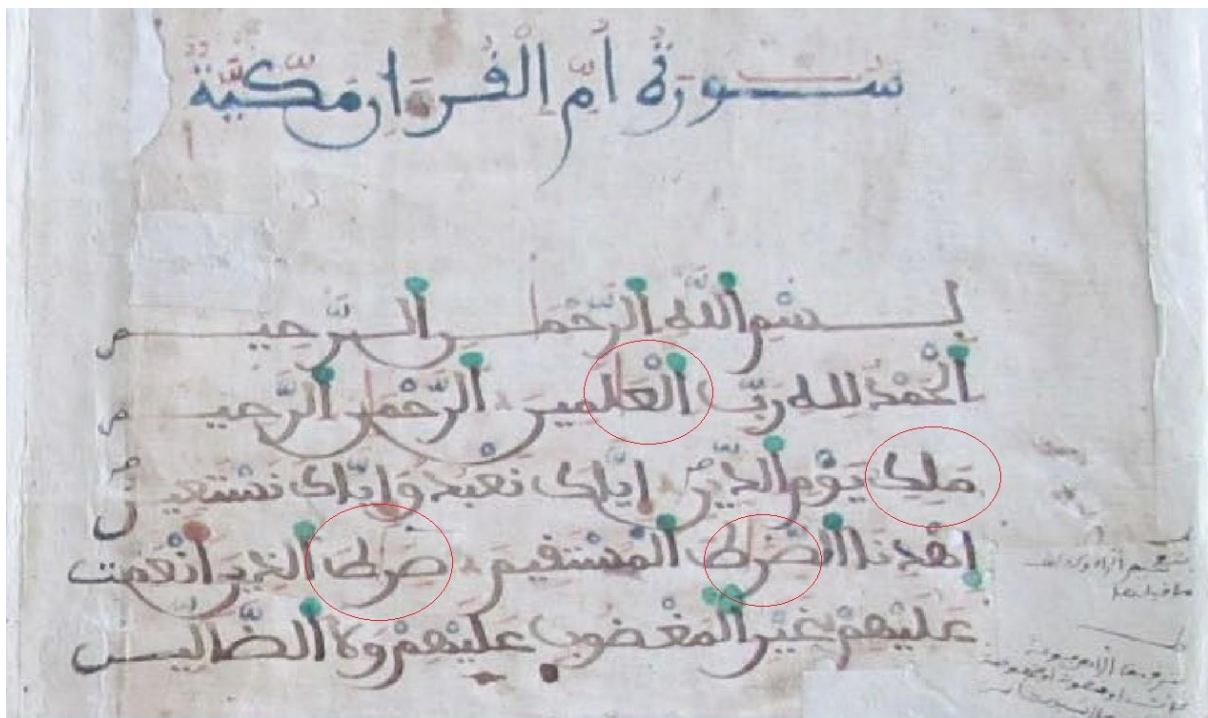 سُورَةُ أُمِّ الْقُرْءَانِ مَكِّيَّةٌ
بِسْمِ اللَّهِ الرَّحْمَٰنِ الرَّحِيمِ
الْحَمْدُ لِلَّهِ رَبِّ الْعَٰلَمِينَ الرَّحْمَٰنِ الرَّحِيمِ
مَلِكِ يَوْمِ الدِّينِ إِيَّاكَ نَعْبُدُ وَإِيَّاكَ نَسْتَعِينُ
اهْدِنَا الصِّرَٰطَ الْمُسْتَقِيمَ صِرَٰطَ الَّذِينَ أَنْعَمْتَ
عَلَيْهِمْ غَيْرِ الْمَغْضُوبِ عَلَيْهِمْ وَلَا الضَّالِّينَ